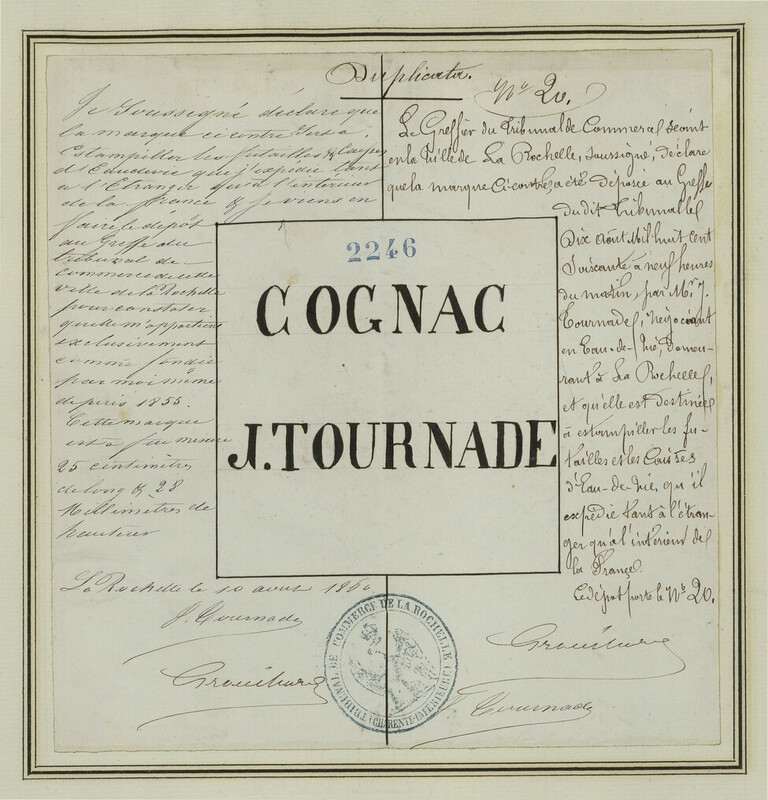 Duplicata.
Je Soussigné déclare que
la marque ci contre sert à
Estampiller les futailles & Caisses
d'Eaudevie que j'expédie tant
à l'Etranger qu'à l'intérieur
de la france & je viens en
faire le dépôt
au Greffe du
tribunal de
commerce de cette
ville de la Rochelle
pour constater
qu'elle m'appartient
exclusivement
comme fondée
par moi même
depuis 1855.
Cette marque
est a
25 centimètres
de long & 28
Millimètres de
hauteur
La Rochelle le 10 aout 1860
J. Tournade
2246
COGNAC
J. TOURNADE
No 20.
Le Greffier du Tribunal de Commerce séant
en la Ville de La Rochelle, soussigné, déclare
que la marque Ci-contre a été déposée au Greffe
du dit Tribunal le
Dix Août Mil huit cent
Soixante à neuf heures
du matin, par Mr. J.
Tournade, négociant
en Eau-de-Vie, demeu-
rant à La Rochelle,
et qu'elle est destinée
à estampiller les fu-
tailles et les Caisses
d'Eau-de-Vie, qu'il
expédie tant à l'étran-
ger qu'à l'intérieur de
la France.
Ce dépôt porte le No 20.
J. Tournade
TRIBUNAL DE COMMERCE DE LA ROCHELLE
(CHARENTE-INFÉRIEURE)